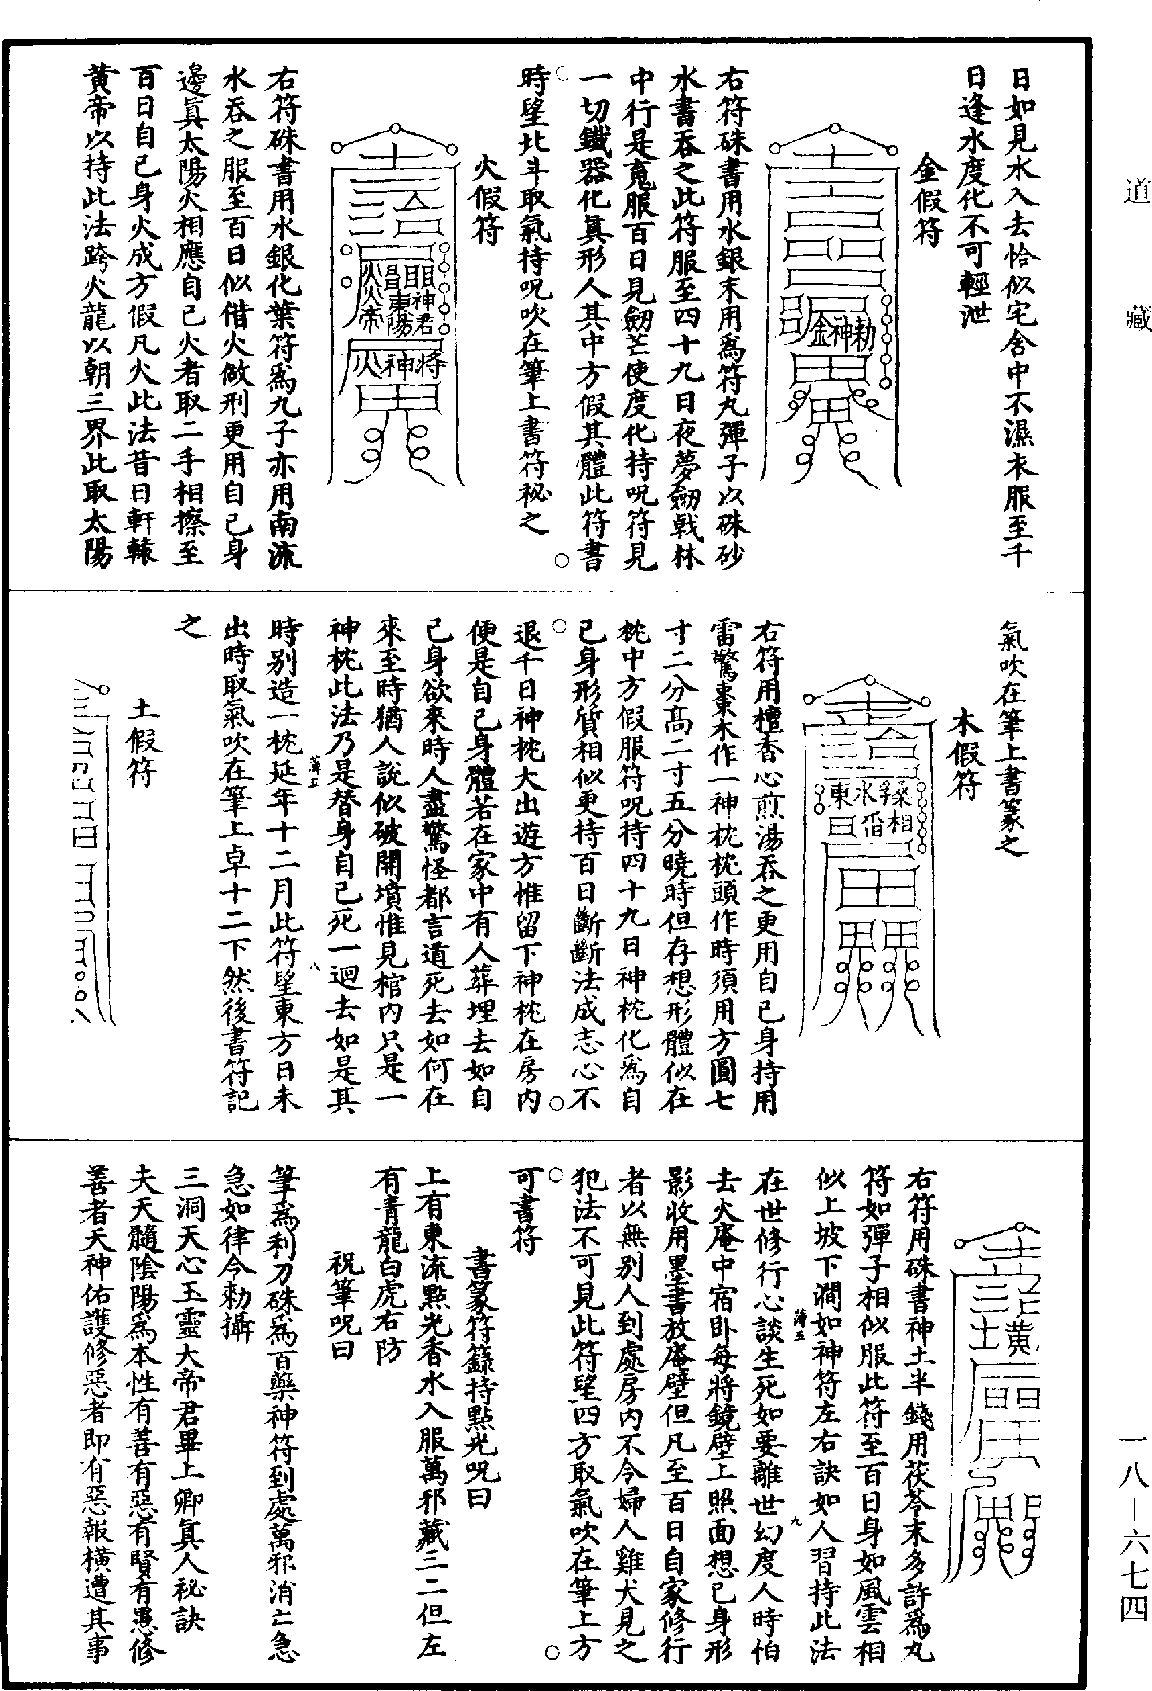 道藏
日如見水入去恰似宅舍中不濕衣服至千
日逢水度化不可輕泄
金假符
勅神金
右符硃書用水銀末用爲符丸彈子以硃砂
水書吞之此符服至四十九日夜夢劒戟林
中行是寬服百日見劒芒使度化持呪符見
一切鐵器化眞形人其中方假其體此符書
時望北斗取氣持呪吹在筆上書符秘之
火假符
右符硃書用水銀化葉符爲九子亦用南流
水吞之服至百日似借火做刑更用自己身
邊眞太陽火相應自己火者取二手相擦至
百日自己身火成方假凡火此法昔日軒轅
黄帝以持此法跨火龍以朝三界此取太陽
氣吹在筆上書篆之
木假符
右符用檀香心煎湯吞之更用自己身持用
雷驚棗木作一神枕枕頭作時須用方圓七
寸二分髙二寸五分曉時但存想形體似在
枕中方假服符呪持四十九日神枕化爲自
己身形質相似更持百日斷斷法成志心不
退千日神枕大出遊方惟留下神枕在房内
便是自己身體若在家中有人葬埋去如自
己身欲來時人盡驚怪都言道死去如何在
來至時猶人說似破開墳惟見棺内只是一
神枕此法乃是替身自己死一迴去如是其
薄五 八
時别造一枕延年十二月此符望東方日未
出時取氣吹在筆上卓十二下然後書符記
之
土假符
右符用硃書神土半錢用茯苓末多許爲丸
符如彈子相似服此符至百日身如風雲相
似上坡下澗如神符左右訣如人習持此法
薄五 九
在世修行心談生死如要離世幻度人時怕
去火庵中宿卧每將鏡壁上照面想己身形
影收用墨書放庵壁但凡至百日自家修行
者以無别人到處房内不令婦人雞犬見之
犯法不可見此符望四方取氣吹在筆上方
可書符
書篆符籙持點光呪曰
上有東流點光香水入服萬邪藏三二但左
有青龍白虎右防
祝筆呪曰
筆爲利刀硃爲百藥神符到處萬邪消亡急
急如律令勅攝
三洞天心玉靈大帝君畢上卿眞人祕訣
夫天髓陰陽爲本性有善有惡有賢有愚修
善者天神佑護修惡者即有惡報横遭其事
一八—六七四